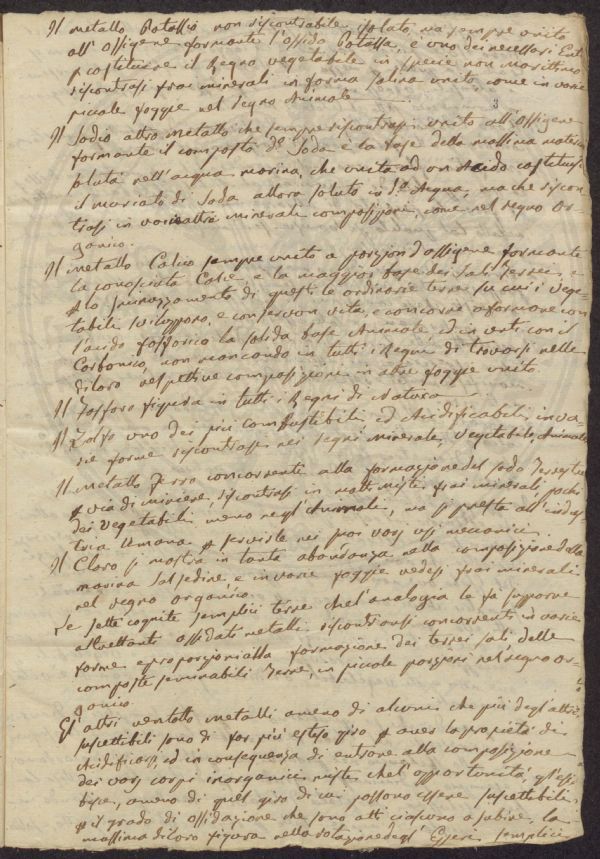 Il metallo Potassio non riscontrabile isolato, ma sempre unito
all'Ossigene formante l'ossido Potassa, è uno dei necessarj Enti
costituire il Regno vegetabile in specie non marittimo
riscontrasi frai minerali in forma salina unito come in varie
piccole foggie nel regno Animale
3
Il Sodio altro metallo che sempre riscontrasi unito all'Ossigene
formante il composto d. Soda è la base della massima materia
soluta nell'acqua marina, che unita ad un Acido costituisce
il muriato di Soda allora soluto in d.a Acqua, ma che riscon
trasi in varie altre minerali composizioni, come nel regno Or-
ganico.
Il metallo Calcio sempre unito a porzion d'ossigene formante
la conosciuta Calce è la maggior base dei Sali terrei, e
lo sminuzzamento di questi le ordinarie terre su cui i vege-
tabili sviluppano, e conservon vita, e concorre a formare con
l'acido fosforico la solida base Animale ed in certi con il
Carbonico, non mancando in tutti i Regni di trovarsi nelle
di loro respettive composizioni in altre foggie unito.
Il Fosforo figura in tutti i Regni di Natura
Il Zolfo uno dei più combustibili ed Acidificabili, in va-
rie forme riscontrasi nei regni minerale, Vegetabile, Animale
Il metallo Ferro concorrente alla formazione del sodo Terrestre
via di miniere, riscontrasi in molti misti frai minerali, pochi
dei Vegetabili meno negl'Animali, ma si presta all'indus-
tria Umana servirle nei suoi varj usi meccanici.
Il Cloro si mostra in tanta abondanza nella composizione della
marina Salsedine e in varie foggie vedesi frai minerali
nel regno organico.
Le sette cognite semplici terre che l'analogia le fa supporre
altrettanti ossidati metalli riscontransi concorrenti in varie
forme e proporzioni alla formazione dei terrei sali, delle
composte seminabili Terre, in piccole porzioni nel regno or-
ganico.
Gl'altri ventotto metalli ameno di alcuni che più degl'altri
suscettibili sono di far più esteso giro aver la proprietà di
Acidificarsi, ed in conseguenza di entrare alla composizione
dei varj corpi inorganici misti che l'opportunità gl'esi
bisce, ameno di quel giro di cui possono essere suscettibili
il grado di ossidazione che sono atti ciascuno a subire la
massima di loro figura nella rotazione degl'Esseri semplici